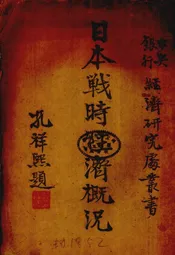 中央
銀行
經濟研究處叢書
日本戰時經濟概況
孔祥熙題